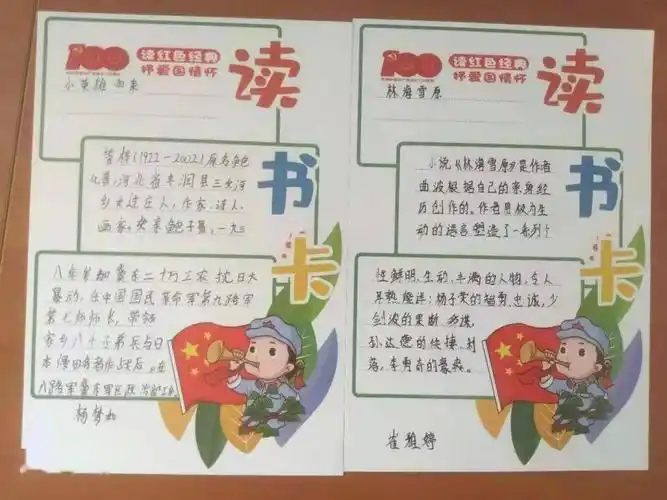 100
读红色经典
抒爱国情怀
读书卡
小英雄雨来
管桦(1922-2002)原名鲍
化普,河北省丰润县三女河
乡女过庄人,作家、诗人、
画家。父亲鲍子菁,一九三
八年参加冀东二十万工农抗日大
暴动,任中国国民革命军第九路军
第七师师长,带领
家乡八十子弟兵与日
本侵略者作战后,在
八路军冀东军区政治部工作
杨梦如
100
读红色经典
抒爱国情怀
读书卡
林海雪原
小说《林海雪原》是作者
曲波根据自己的亲身经
历创作的。作者用极为生
动的语言塑造了一系列个
性鲜明、生动、丰满的人物,令人
耳熟能详:杨子荣的智勇忠诚,少
剑波的果断
孙达得的快捷
李勇奇的
崔雅婷